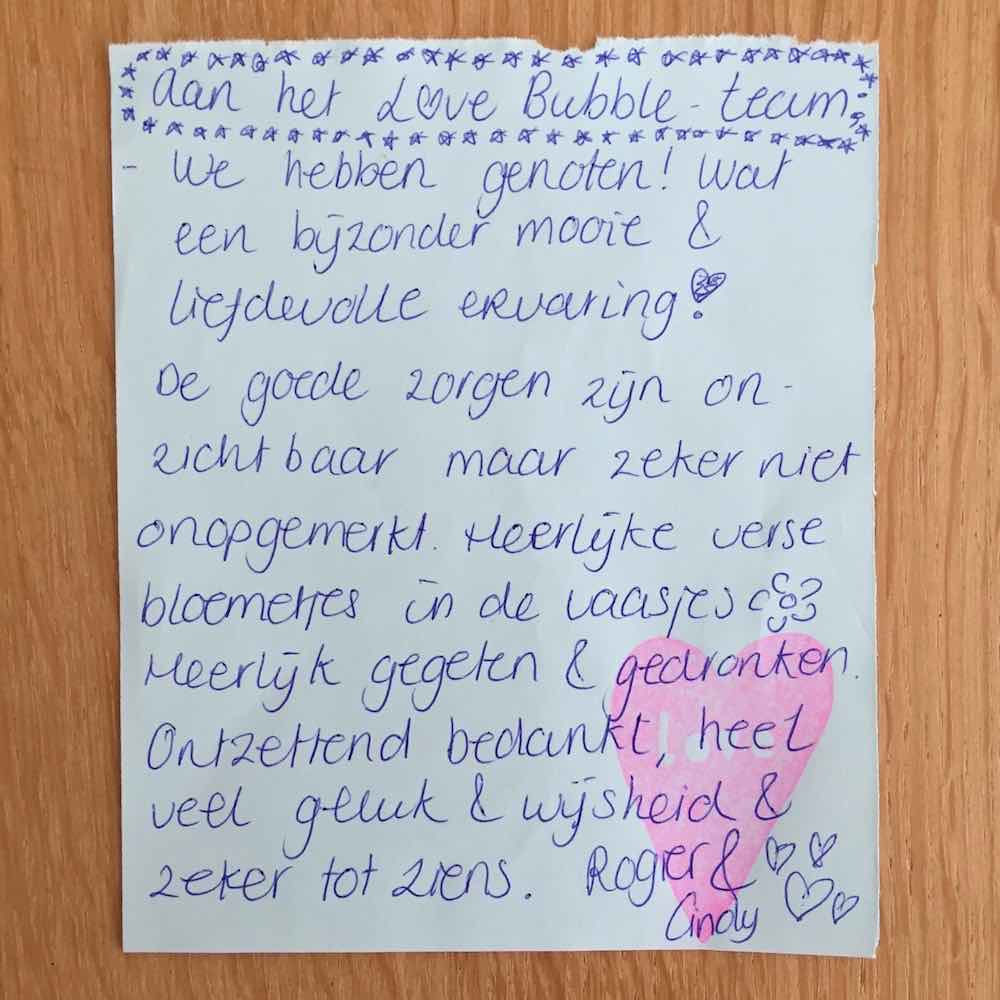 Aan het Love Bubble-team:
- We hebben genoten! Wat
een bijzonder mooie &
liefdevolle ervaring!
De goede zorgen zijn on-
zichtbaar maar zeker niet
onopgemerkt. Heerlijke verse
bloemetjes in de vaasjes
Heerlijk gegeten & gedronken.
Ontzettend bedankt, heel
veel geluk & wijsheid &
zeker tot ziens. Rogier &
Cindy
love